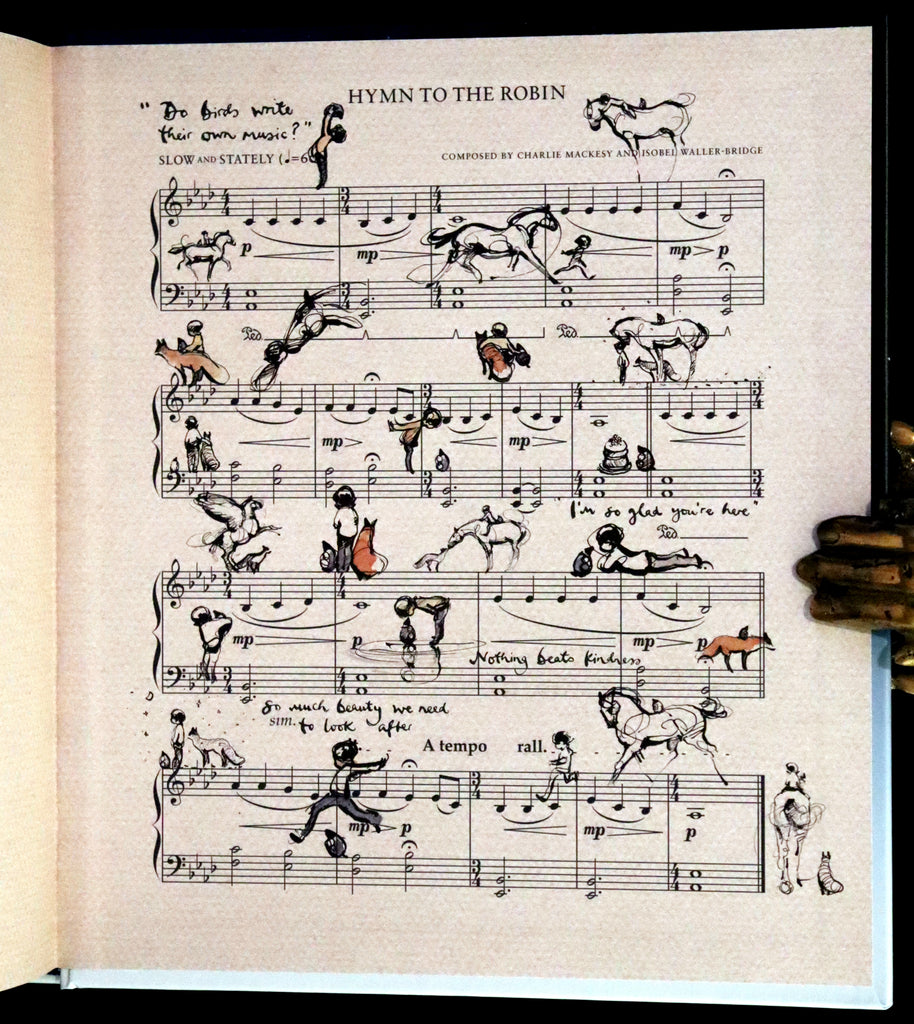 HYMN TO THE ROBIN
" Do birds write
their own music? "
SLOW AND STATELY (♩=6
COMPOSED BY CHARLIE MACKESY AND ISOBEL WALLER-BRIDGE
p mp mp p
Ped. Ped.
mp mp
"I'm so glad you're here"
Ped.
mp p mp p
Nothing beats kindness
So much beauty we need
sim. to look after
A tempo rall.
mp p mp p